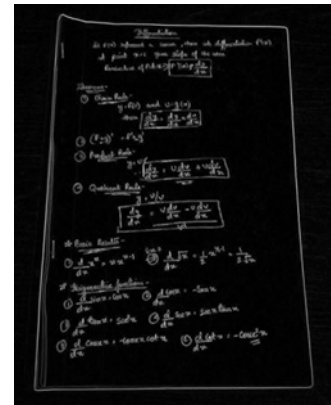 Differentiation
If f(x) represent a curve, then its differentiation f'(x)
at point x=c gives slope of the curve
Derivative of f(x)
Chain Rule -
y=f(u) and u=g(x)
then dy/dx = dy/du · du/dx
③ Product Rule -
y=uv
dy/dx = u dv/dx + v du/dx
④ Quotient Rule -
y = u/v
* Basic Results -
① d/dx xⁿ = n xⁿ⁻¹
② d/dx √x = 1/2 = 1/2√x
* Trigonometric functions -
① d/dx sinx = cosx
② d/dx cosx = -sinx
③ d/dx tanx = sec²x
④ d/dx secx = secx tanx
⑤ d/dx cosecx = -cosecx cotx
⑥ d/dx cotx = -cosec²x